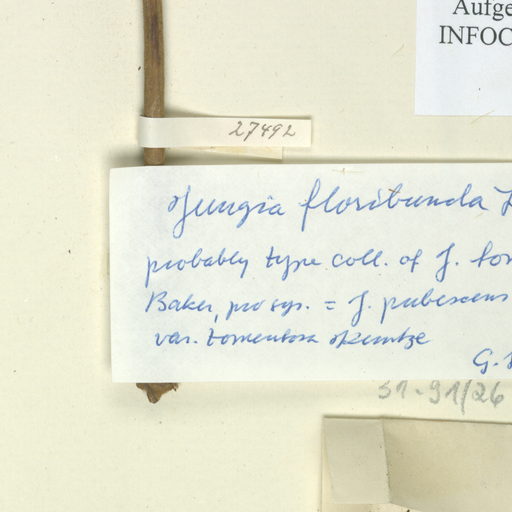 Aufge
INFOC
27492
Jungia floribunda L
probably type coll. of J.
Baker, pro syn. = J. pubescens
var. tomentosa Okuntze
G.
31-91/26